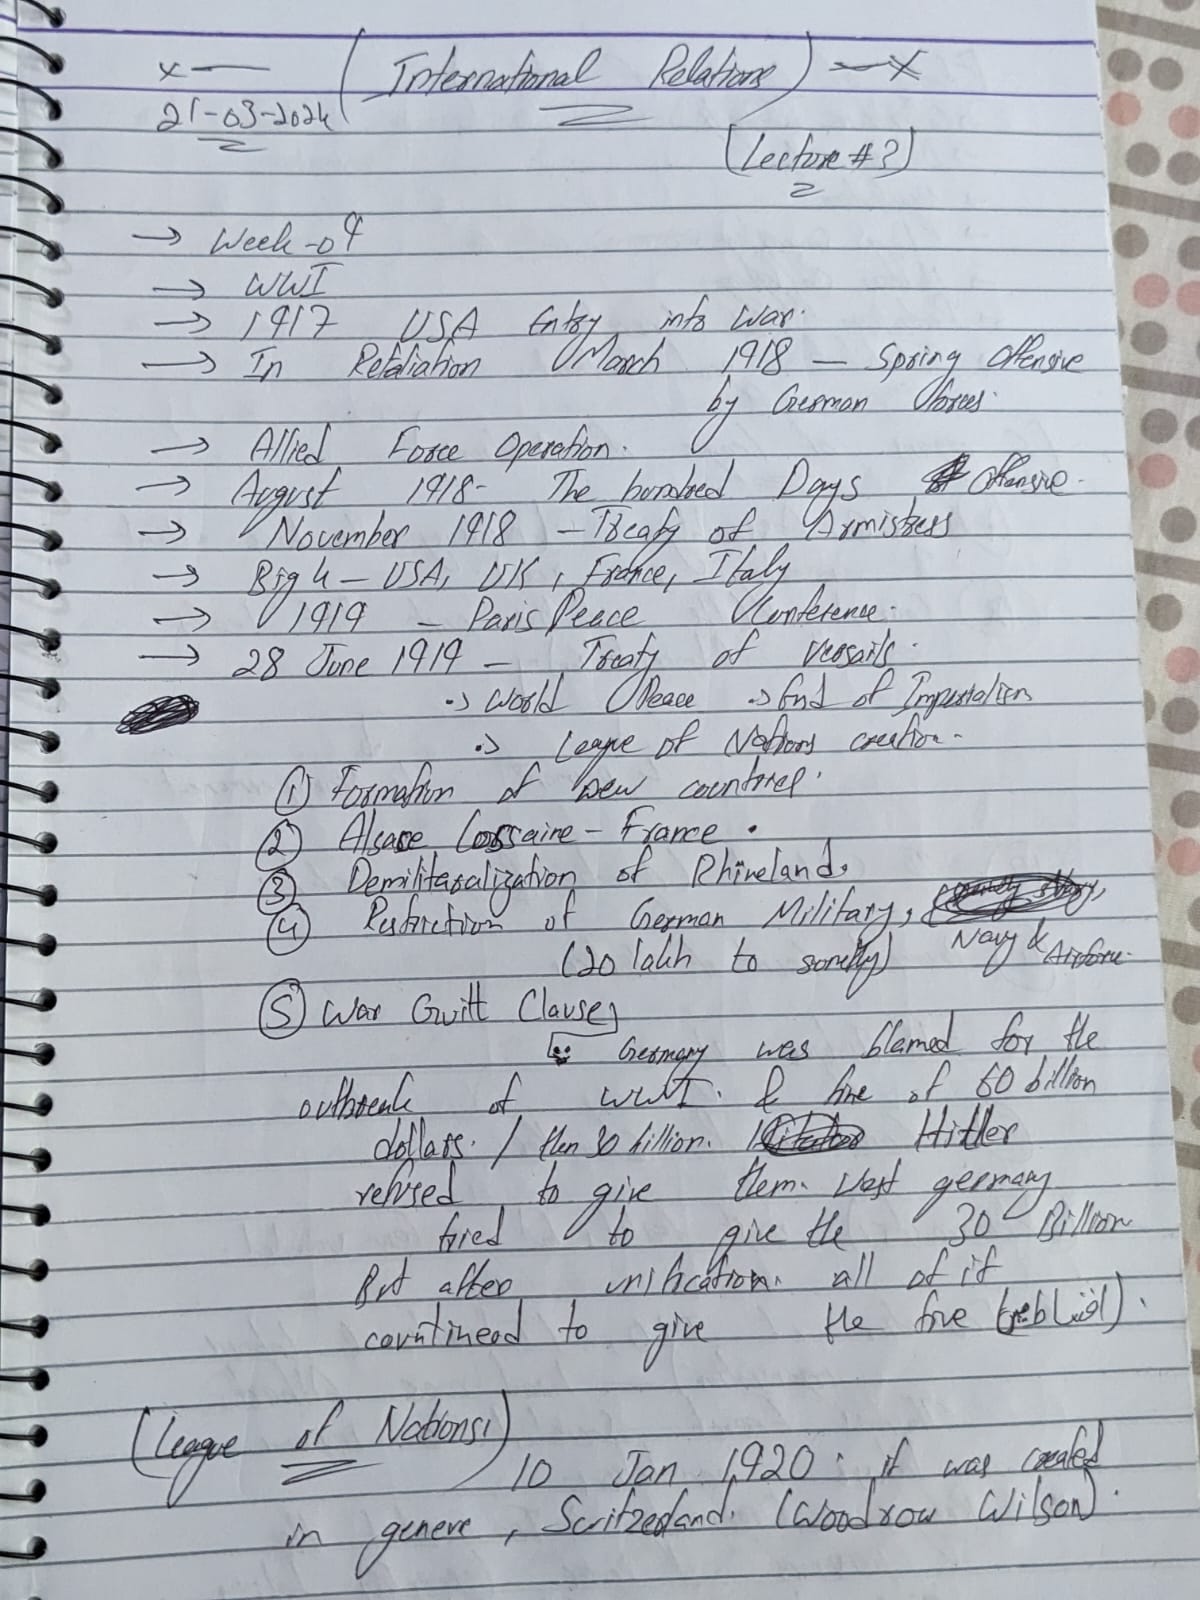 x— (International Relations) —x
21-03-2024
(Lecture #3)
→ Week-04
→ WWI
→ 1917 USA Entry into War.
→ In Retaliation March 1918 — Spring Offensive
by German forces.
→ Allied Force Operation.
→ August 1918- The hundred Days Offensive.
→ November 1918 - Treaty of Armistress
→ Big 4 - USA, UK, France, Italy
→ 1919 - Paris Peace Conference.
→ 28 June 1919 - Treaty of Versails.
→ World Peace → End of Imperialism
→ League of Nations creation.
① Formation of new countries.
② Alsace Lorraine - France.
③ Demilitaralization of Rhineland.
④ Restriction of German Military,
Navy & Airforce.
(20 lakh to )
⑤ War Guilt Clause,
Germany was blamed for the
outbreak of WWI. & fine of 60 billion
dollars. / then 30 billion. Hitler
refused to give them. West germany
tried to give the 30 Billion
But after unification. all of it
countineed to give the fine
(League of Nations)
10 Jan 1920. it was created
in geneve, Switzerland. (Woodrow Wilson).